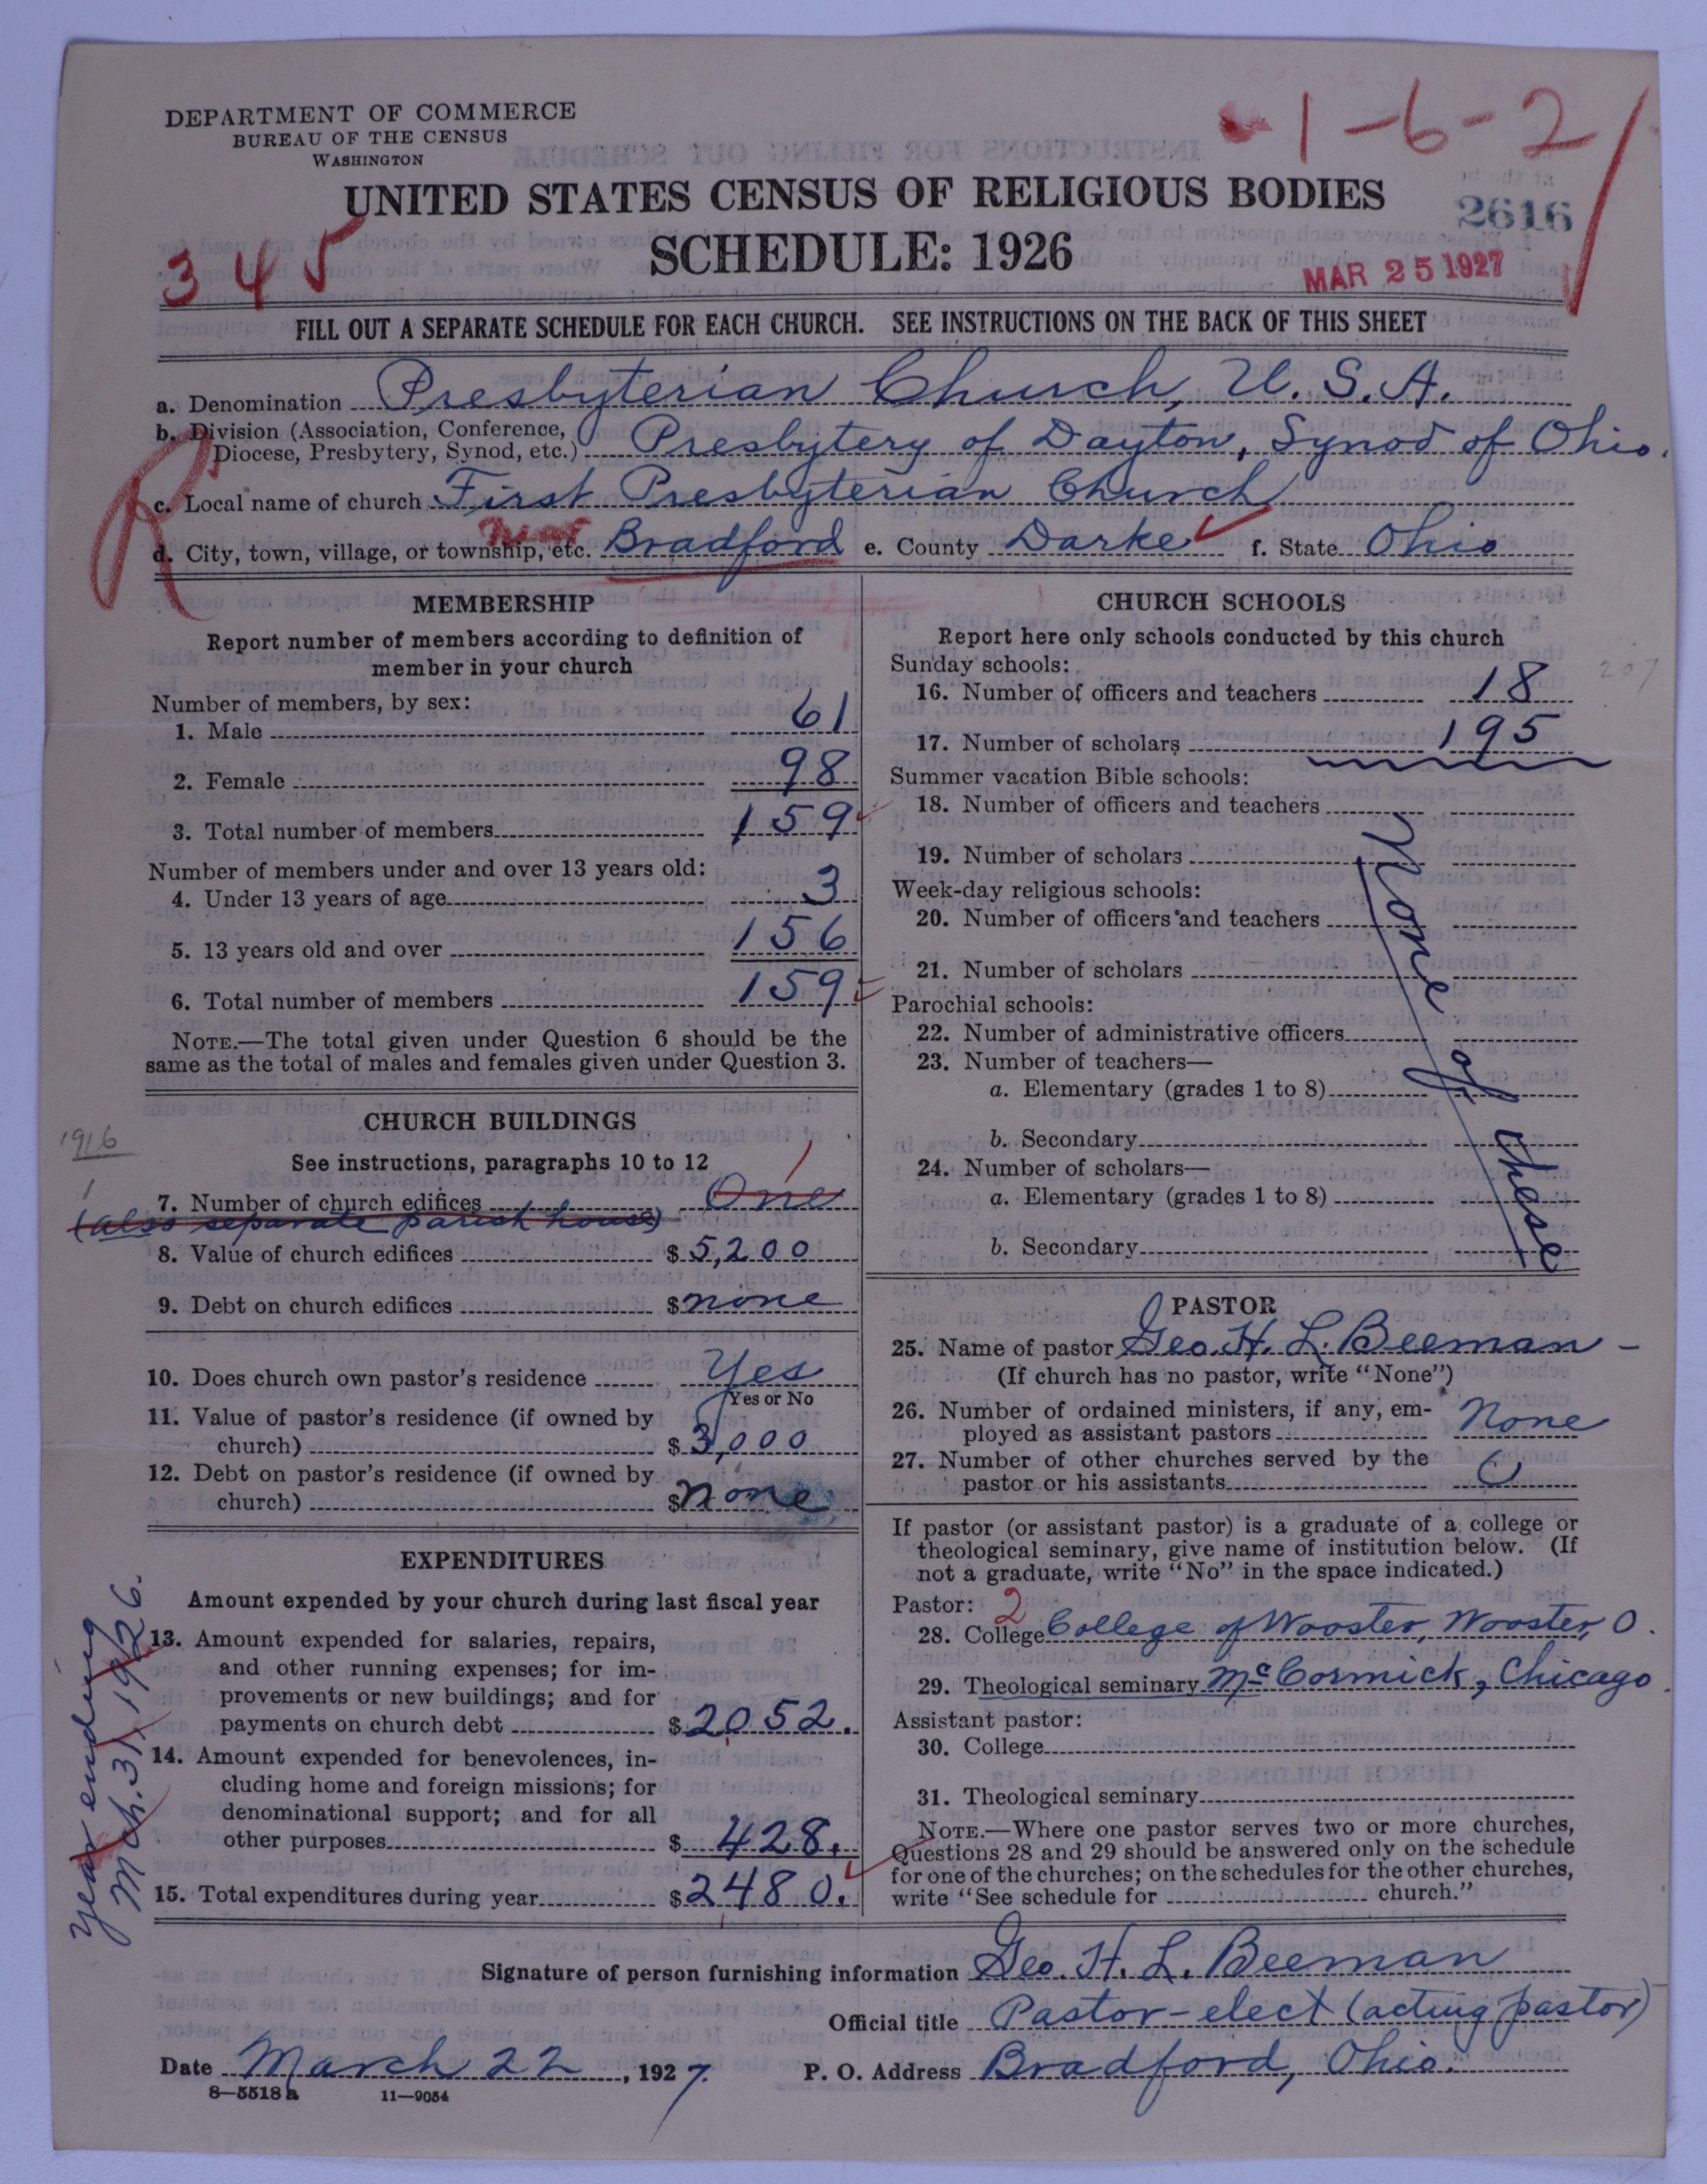 DEPARTMENT OF COMMERCE
BUREAU OF THE CENSUS
WASHINGTON
1-6-2
UNITED STATES CENSUS OF RELIGIOUS BODIES
2616
SCHEDULE: 1926
345
MAR 25 1927
FILL OUT A SEPARATE SCHEDULE FOR EACH CHURCH. SEE INSTRUCTIONS ON THE BACK OF THIS SHEET
a. Denomination Presbyterian Church, U.S.A.
b. Division (Association, Conference, Diocese, Presbytery, Synod, etc.) Presbytery of Dayton, Synod of Ohio.
R
c. Local name of church First Presbyterian Church
near
d. City, town, village, or township, etc. Bradford e. County Darke f. State Ohio
MEMBERSHIP
Report number of members according to definition of
member in your church
Number of members, by sex:
1. Male 61
2. Female 98
3. Total number of members 159
Number of members under and over 13 years old:
4. Under 13 years of age 3
5. 13 years old and over 156
6. Total number of members 159
NOTE.—The total given under Question 6 should be the
same as the total of males and females given under Question 3.
CHURCH BUILDINGS
1916
See instructions, paragraphs 10 to 12
1
1
7. Number of church edifices One
(also separate parish house)
8. Value of church edifices $5,200
9. Debt on church edifices $none
10. Does church own pastor's residence Yes
Yes or No
11. Value of pastor's residence (if owned by
church) $3,000
12. Debt on pastor's residence (if owned by
church) $none
EXPENDITURES
Amount expended by your church during last fiscal year
Year ending
Mch. 31, 1926.
13. Amount expended for salaries, repairs,
and other running expenses; for im-
provements or new buildings; and for
payments on church debt $2052.
14. Amount expended for benevolences, in-
cluding home and foreign missions; for
denominational support; and for all
other purposes $428.
15. Total expenditures during year $2480.
CHURCH SCHOOLS
Report here only schools conducted by this church
Sunday schools:
207
16. Number of officers and teachers 18
17. Number of scholars 195
Summer vacation Bible schools:
18. Number of officers and teachers
19. Number of scholars
Week-day religious schools:
20. Number of officers and teachers
21. Number of scholars
Parochial schools:
22. Number of administrative officers
23. Number of teachers—
a. Elementary (grades 1 to 8)
b. Secondary
24. Number of scholars—
a. Elementary (grades 1 to 8)
b. Secondary
None of these
PASTOR
25. Name of pastor Geo. H. L. Beeman
(If church has no pastor, write "None")
26. Number of ordained ministers, if any, em-
ployed as assistant pastors None
27. Number of other churches served by the
pastor or his assistants 0
If pastor (or assistant pastor) is a graduate of a college or
theological seminary, give name of institution below. (If
not a graduate, write "No" in the space indicated.)
Pastor: 2
28. College College of Wooster, Wooster, O.
29. Theological seminary McCormick, Chicago.
Assistant pastor:
30. College
31. Theological seminary
NOTE.—Where one pastor serves two or more churches,
Questions 28 and 29 should be answered only on the schedule
for one of the churches; on the schedules for the other churches,
write "See schedule for church."
Signature of person furnishing information Geo. H. L. Beeman
Official title Pastor-elect (acting pastor)
Date March 22, 1927. P. O. Address Bradford, Ohio.
8—5518 a 11—9054